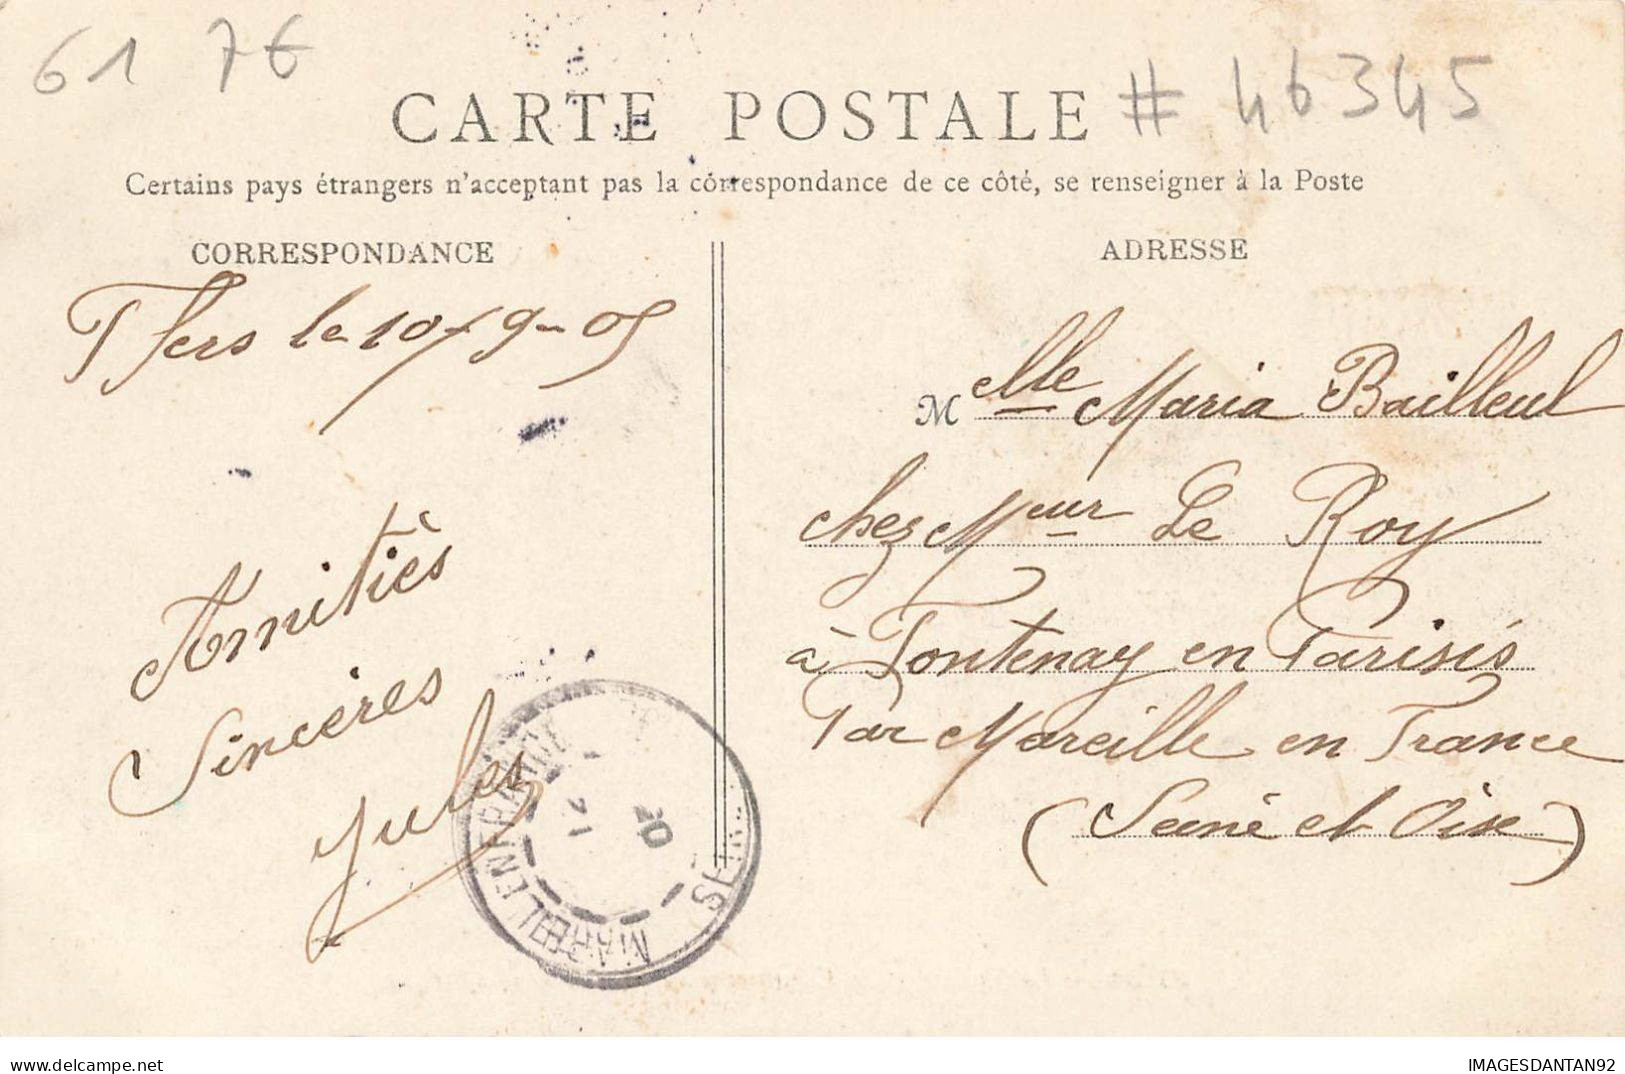 61 7€
# 46345
CARTE POSTALE
Certains pays étrangers n'acceptant pas la correspondance de ce côté, se renseigner à la Poste
CORRESPONDANCE
Flers le 10/9-05
Amitiès
Sincères
Jules
ADRESSE
Melle Maria Bailleul
chez Meur Le Roy
à Fontenay en Parisis
Par Mareille en France
(Seine et Oise)
MAREIL EN FRANCE
21 20
SEINE
Voir plus de détails
IMAGESDANTAN92